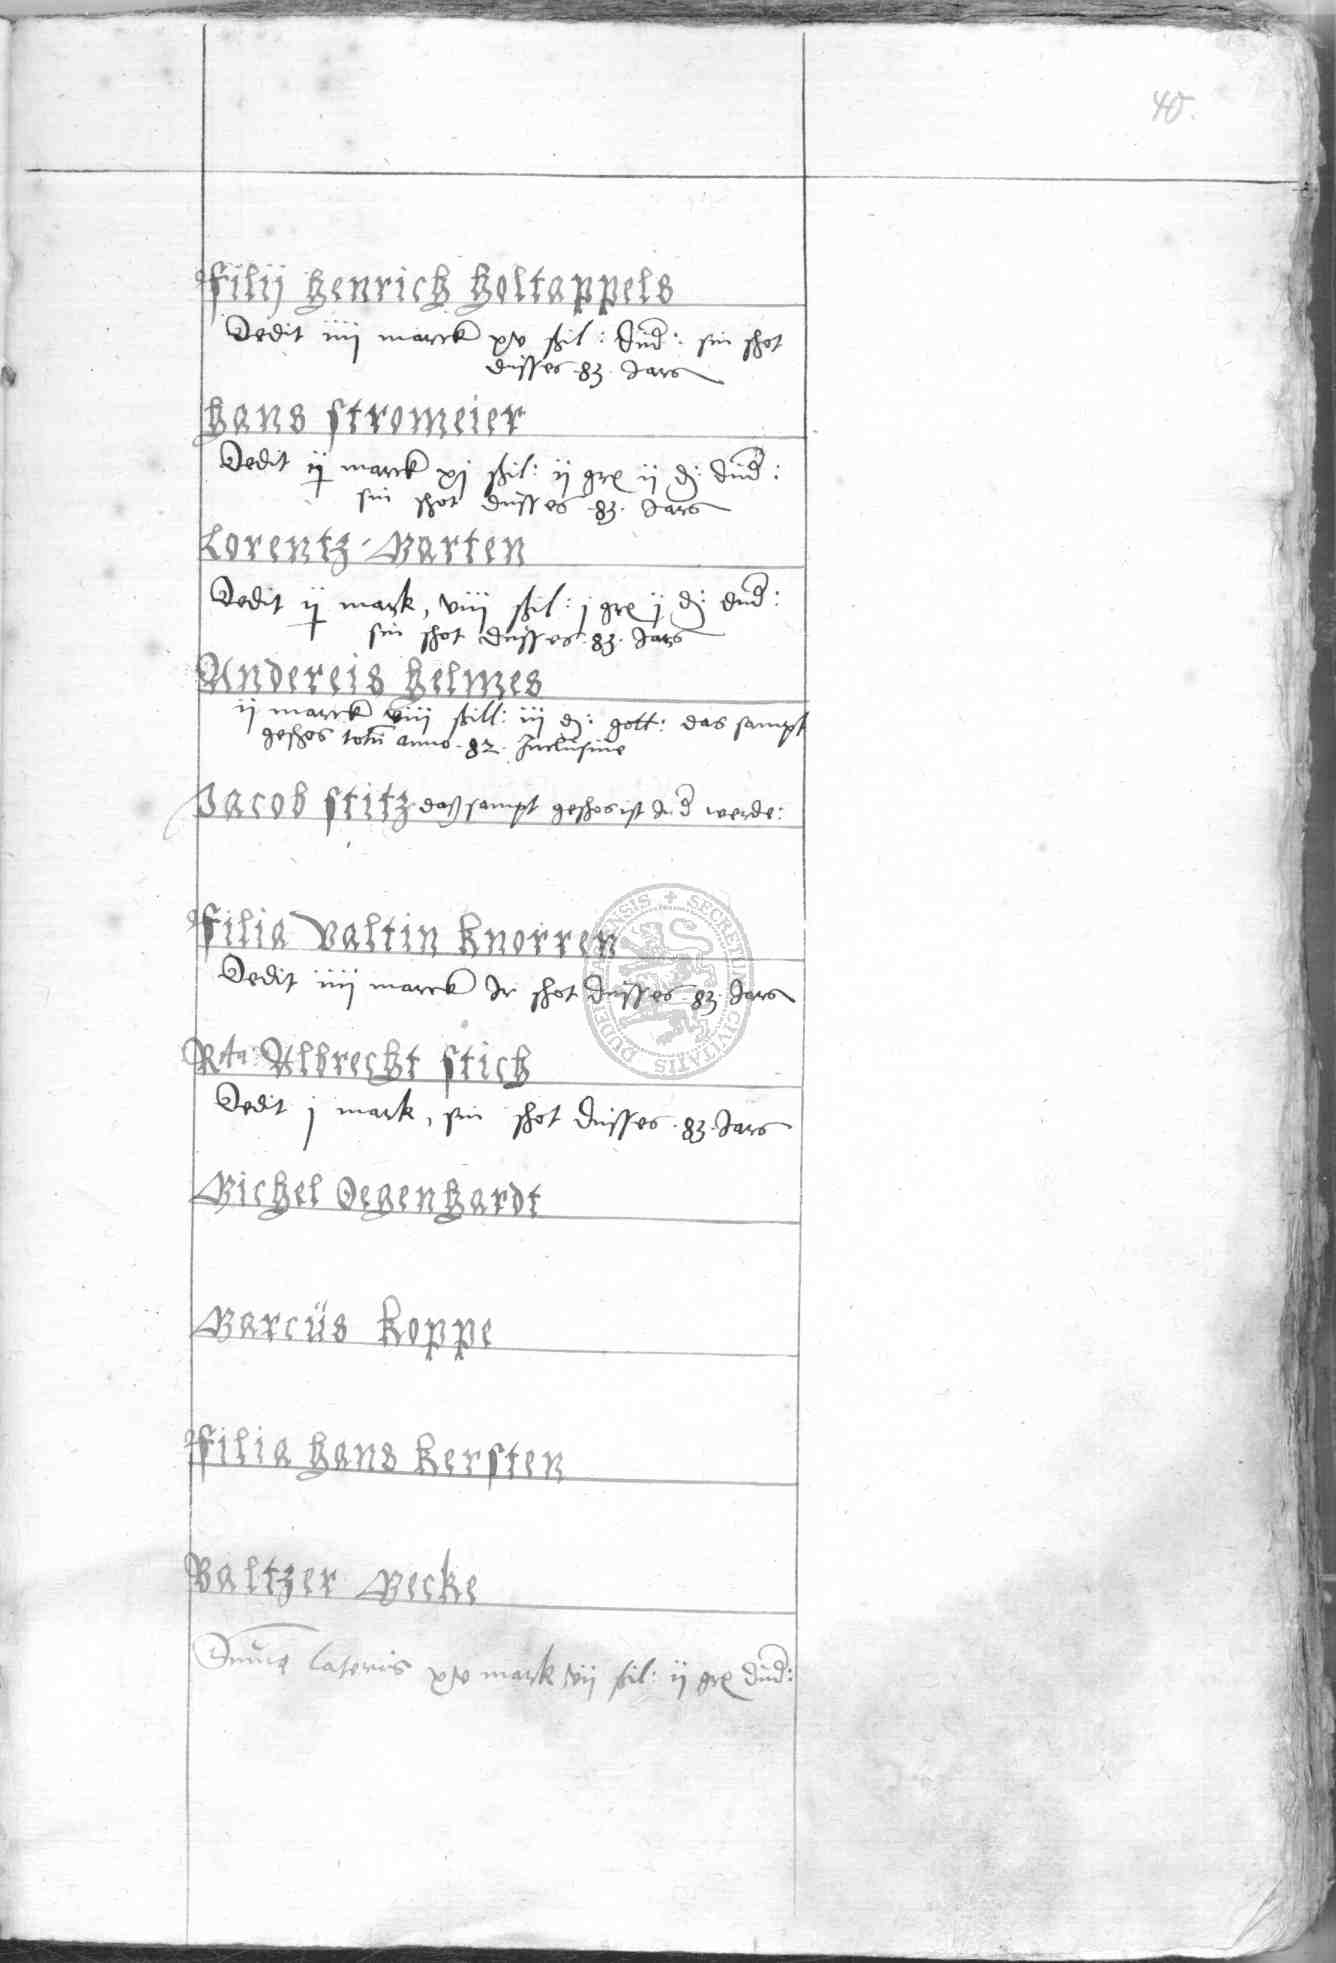 40.
Filij Henrich Holtappels
Dedit iiij marck xv shil: dud: sin shot
dusses .83. Jars
Hans Stromeier
Dedit ij marck xj shil: ij gr ij d: dud:
sin shot dusses .83. Jars
Lorentz Marten
Dedit ij mark, viij shil: j gr ij d: dud:
sin shot dusses .83. Jars
Andereis Helmes
ij marck viij shill: iij d: gott: das sampt
geshos totu anno .82. Inclusiue
Jacob Stitz daß sampt geshos ist werde:
Filia Valtin Knorren
Dedit iiij marck Ir shot dusses .83. Jars
Rta: Albrecht Stich
Dedit j mark, sin shot dusses .83. Jars
Michel Degenhardt
Marcüs Koppe
Filia Hans Kersten
Baltzer Becke
lateris xv mark vij shil: ij gr dud:
DUDERSTADENSIS + SECRETUM CIVITATIS